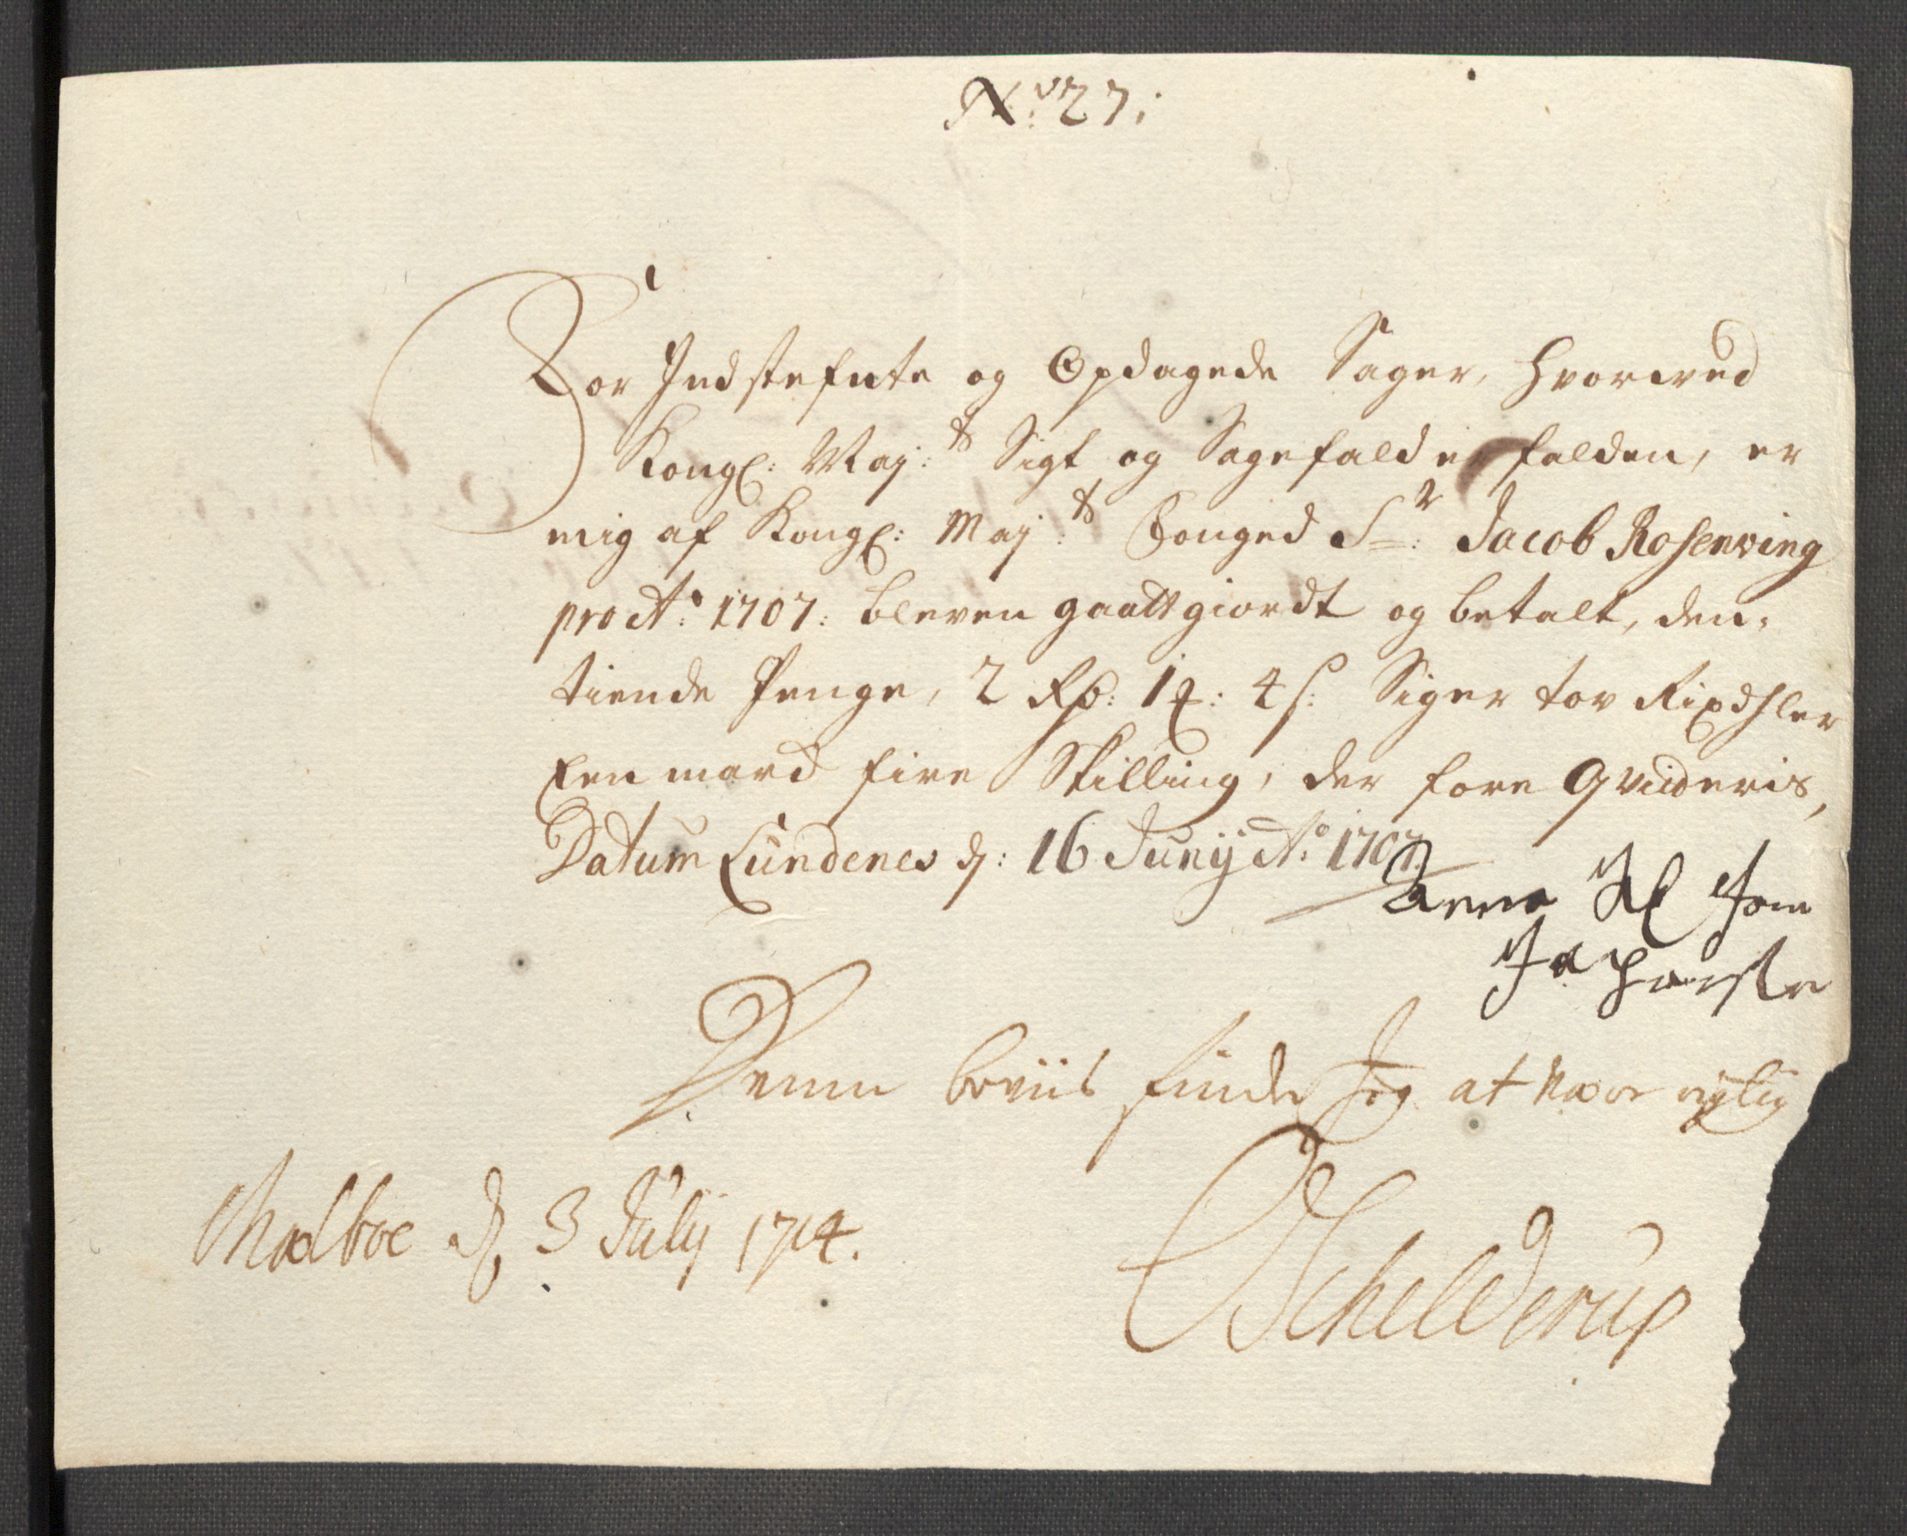 No 27:
For Indstefnte og Opdagede Sager, hvorved
Kongl: Maj:ts Sigt og Sagefald er falden, er
mig af Kongl: Maj:ts Fouged Sr: Jacob Rosenving
pro Ao: 1707: bleven gaatt giordt og betalt, den
tiende Penge, 2 Rd: 1 : 4 s: Siger tov Rixdhler
Een march fire Skilling, der fore Qviideris,
Datum Lundenes d: 16 Junij Ao: 1707
Anna
Denne beviis finder Jeg at være rigtig
d 3 Julij 1714.
Schelderup